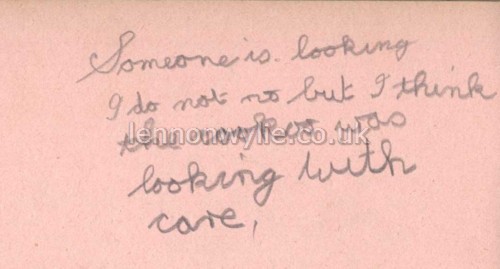 Someone is looking
I do not no but I think
the was
looking with
care,
lennonwylie.co.uk